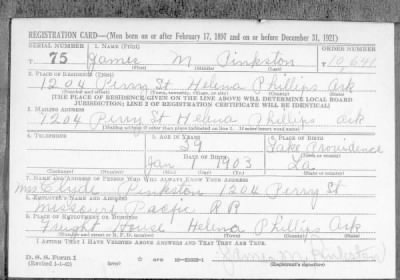 REGISTRATION CARD—(Men born on or after February 17, 1897 and on or before December 31, 1921)
SERIAL NUMBER 1. NAME (Print) ORDER NUMBER
T 75 James M Pinkston T 10,641
(First) (Middle) (Last)
2. PLACE OF RESIDENCE (Print)
1204 Perry St Helena Phillips Ark
(Number and street) (Town, township, village, or city) (County) (State)
[THE PLACE OF RESIDENCE GIVEN ON THE LINE ABOVE WILL DETERMINE LOCAL BOARD
JURISDICTION; LINE 2 OF REGISTRATION CERTIFICATE WILL BE IDENTICAL]
3. MAILING ADDRESS
1204 Perry St Helena Phillips Ark
[Mailing address if other than place indicated on line 2. If same insert word same]
4. TELEPHONE 5. AGE IN YEARS 6. PLACE OF BIRTH
39 Lake Providence
DATE OF BIRTH
Jan 1 1903 La
7. NAME AND ADDRESS OF PERSON WHO WILL ALWAYS KNOW YOUR ADDRESS
Mrs Clyde Pinkston 1204 Perry St
8. EMPLOYER'S NAME AND ADDRESS
Missouri Pacific R R
9. PLACE OF EMPLOYMENT OR BUSINESS
Freight House Helena Phillips Ark
(Number and street or R. F. D. number) (Town) (County) (State)
I AFFIRM THAT I HAVE VERIFIED ABOVE ANSWERS AND THAT THEY ARE TRUE.
D. S. S. Form 1
(Revised 1-1-42) (over)
James M Pinkston
(Registrant's signature)